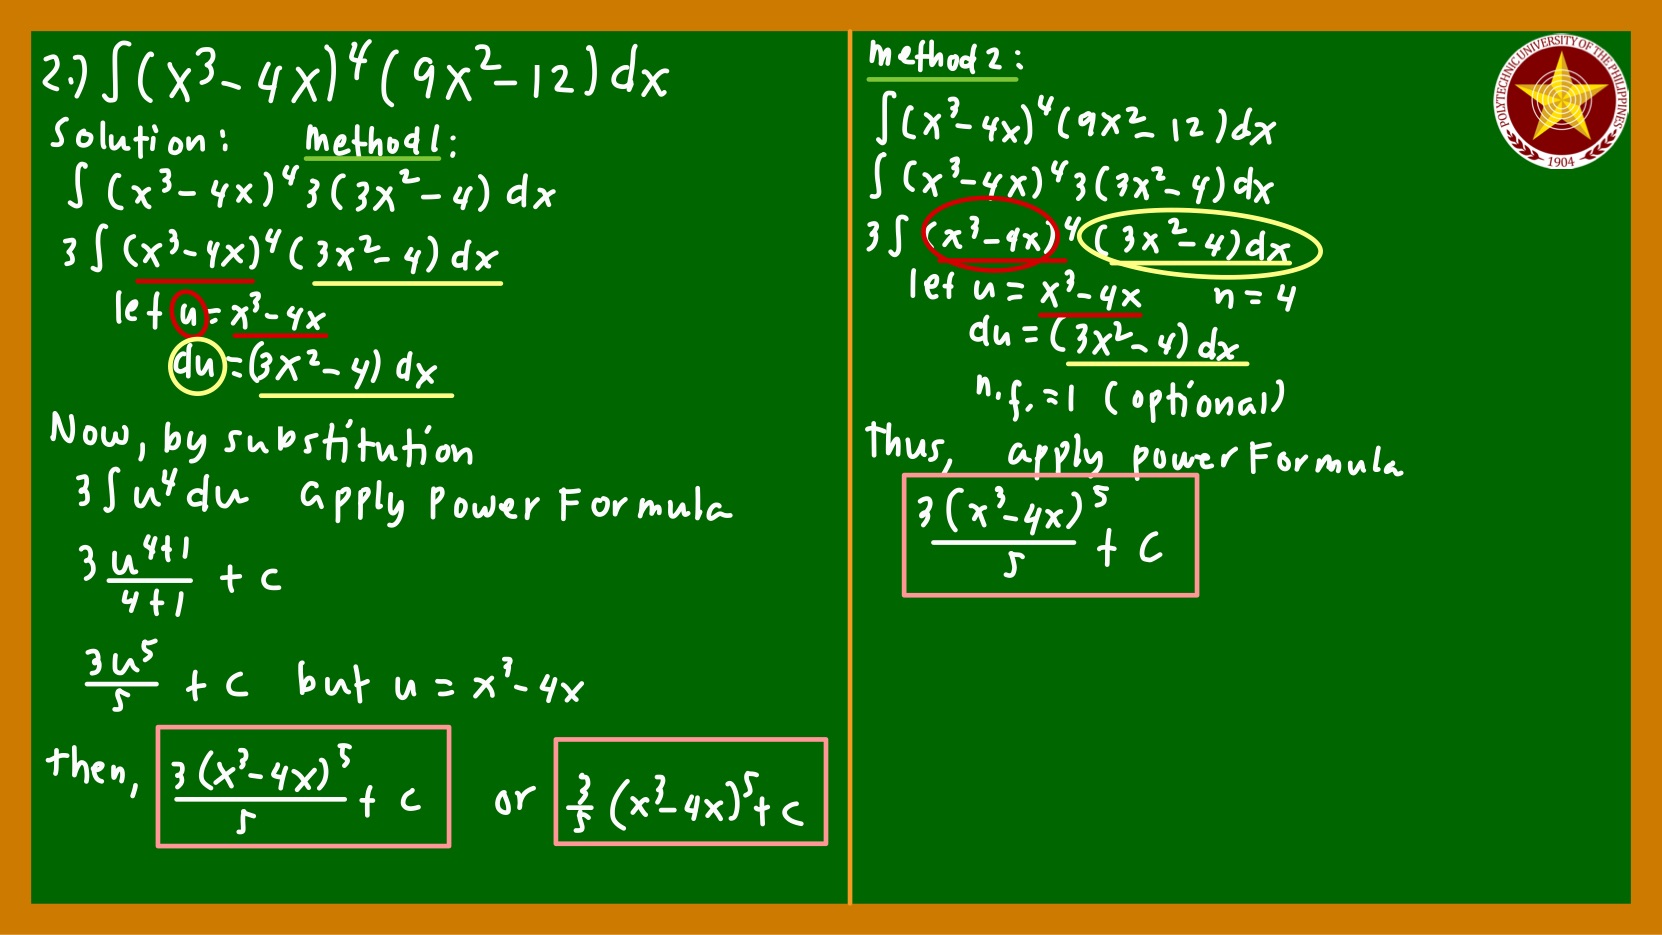 2.) ∫(x³-4x)⁴(9x²-12)dx
Solution: Method 1:
∫(x³-4x)⁴3(3x²-4)dx
3∫(x³-4x)⁴(3x²-4)dx
let u=x³-4x
du=(3x²-4)dx
Now, by substitution
3∫u⁴du apply Power Formula
3 u⁴⁺¹/4+1 + c
3u⁵/5 + c but u = x³-4x
then, 3(x³-4x)⁵/5 + c or 3/5 (x³-4x)⁵+c
Method 2:
∫(x³-4x)⁴(9x²-12)dx
∫(x³-4x)⁴3(3x²-4)dx
3∫(x³-4x)⁴(3x²-4)dx
let u = x³-4x n = 4
du = (3x²-4)dx
n.f. = 1 (optional)
Thus, apply power Formula
3(x³-4x)⁵/5 + c
POLYTECHNIC UNIVERSITY OF THE PHILIPPINES
1904